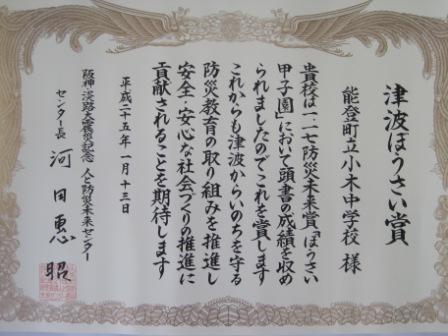 津波ぼうさい賞
能登町立小木中学校 様
貴校は一・一七防災未来賞「ぼうさい
甲子園」において頭書の成績を収め
られましたのでこれを賞します
これからも津波からいのちを守る
防災教育の取り組みを推進し
安全・安心な社会づくりの推進に
貢献されることを期待します
平成二十五年一月十三日
阪神・淡路大震災記念 人と防災未来センター
センター長 河田惠昭